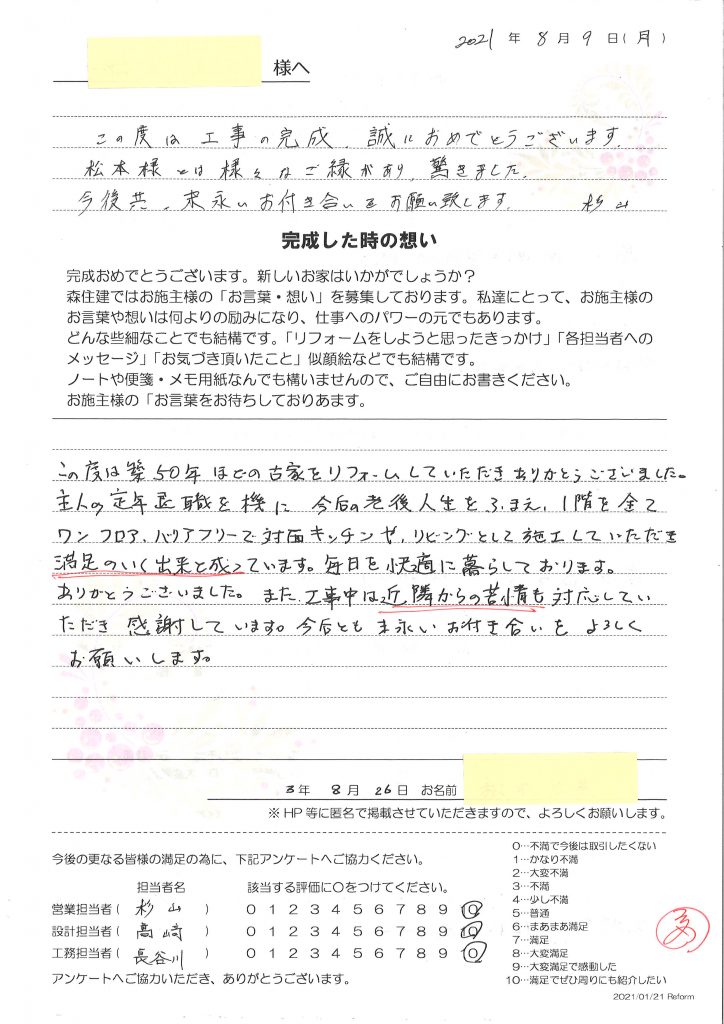 2021 年 8 月 9 日 ( 月 )
様へ
この度は工事の完成、誠におめでとうございます。
松本様とは様々なご縁があり、驚きました。
今後共、末永いお付き合いをお願い致します。 杉山
完成した時の想い
完成おめでとうございます。新しいお家はいかがでしょうか？
森住建ではお施主様の「お言葉・想い」を募集しております。私達にとって、お施主様の
お言葉や想いは何よりの励みになり、仕事へのパワーの元でもあります。
どんな些細なことでも結構です。「リフォームをしようと思ったきっかけ」「各担当者への
メッセージ」「お気づき頂いたこと」似顔絵などでも結構です。
ノートや便箋・メモ用紙なんでも構いませんので、ご自由にお書きください。
お施主様の「お言葉をお待ちしておりあます。
この度は築50年ほどの古家をリフォームしていただきありがとうございました。
主人の定年退職を機に 今后の老後人生をふまえ、1階を全て
ワンフロア、バリアフリーで対面キッチンや、リビングとして施工していただき
満足のいく出来と成っています。毎日を快適に暮らしております。
ありがとうございました。また、工事中は近隣からの苦情も対応してい
ただき 感謝しています。今后とも 末永いお付き合いを よろしく
お願いします。
3年 8月 26日 お名前
※HP等に匿名で掲載させていただきますので、よろしくお願いします。
今後の更なる皆様の満足の為に、下記アンケートへご協力ください。
担当者名 該当する評価に○をつけてください。
営業担当者 ( 杉山 ) 0 1 2 3 4 5 6 7 8 9 10
設計担当者 ( 高崎 ) 0 1 2 3 4 5 6 7 8 9 10
工務担当者 ( 長谷川 ) 0 1 2 3 4 5 6 7 8 9 10
アンケートへご協力いただき、ありがとうございます。
0…不満で今後は取引したくない
1…かなり不満
2…大変不満
3…不満
4…少し不満
5…普通
6…まあまあ満足
7…満足
8…大変満足
9…大変満足で感動した
10…満足でぜひ周りにも紹介したい
2021/01/21 Reform